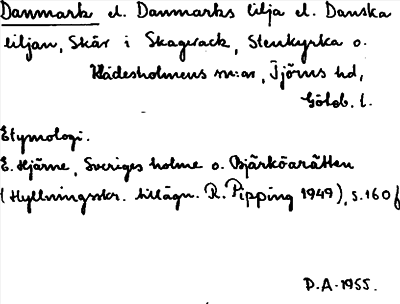 Danmark el. Danmarks lilja el. Danska
liljan, Skär i Skagerack, Stenkyrka o.
Klädesholmens sn:ar, Tjörns hd,
Götob. l.
Etymologi.
E. Hjärne, Sveriges holme o. Bjärköarätten
(Hyllningsskr. tillägn. R. Pipping 1949), s. 160 f
D.A. 1955.